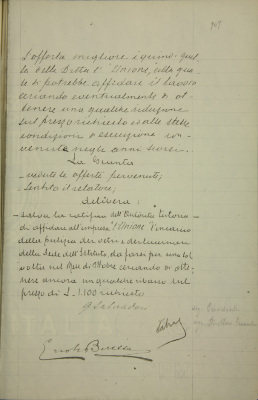 L'offerta migliore è quindi quel-
la della Ditta L'Unione, alla qua-
le si potrebbe affidare il lavoro
cercando eventualmente di ot-
tenere una qualche riduzione
sul prezzo richiesto e alle stesse
condizioni di esecuzione con-
venute negli anni scorsi.
La Giunta
- vedute le offerte pervenute;
- sentito il relatore;
delibera:
- salva la ratifica dell'Autorità tutoria -
di affidare all'impresa "L'Unione
della pulizia dei vetri e dei lucernari
della Sede dell'Istituto, da farsi per una sol
volta nel mese di Ottobre cercando di otte-
nere ancora un qualche ribasso sul
prezzo di L. 1.100 richiesto